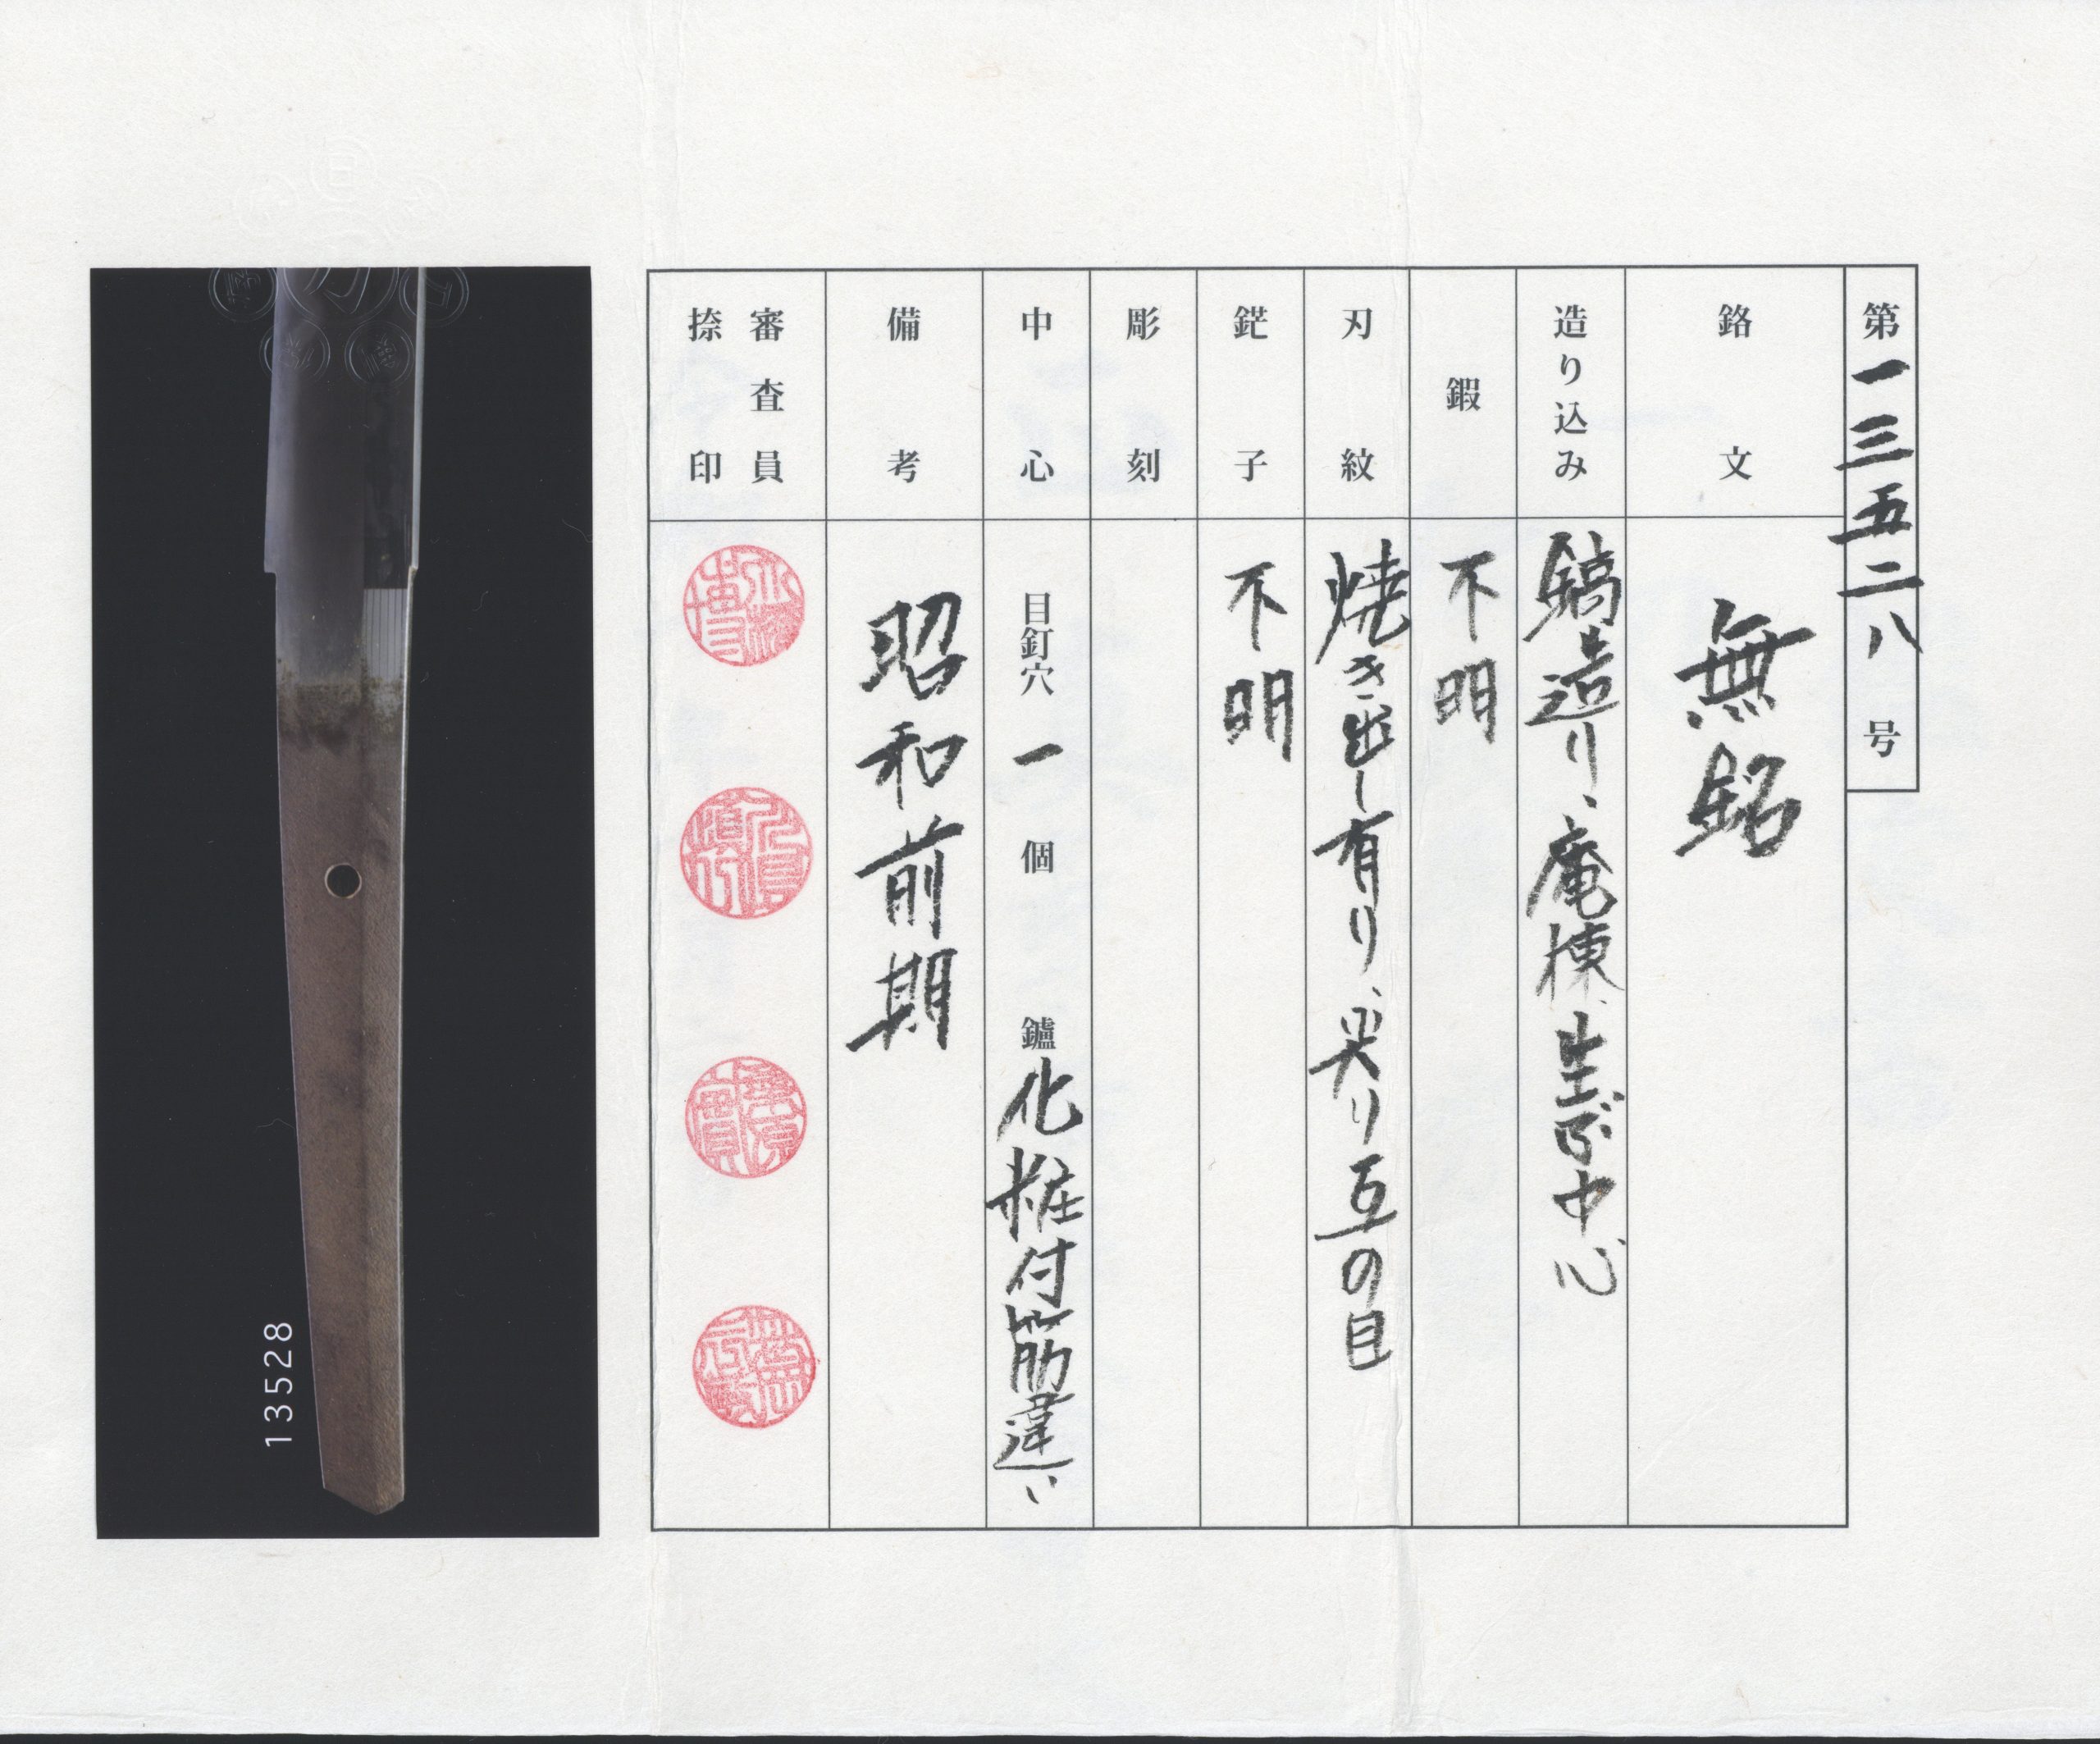 第一三五二八号
銘文
無銘
造り込み
鎬造り、庵棟、生ぶ中心
鍜
不明
刃紋
焼き出し有り、尖り互の目
鋩子
不明
彫刻
中心
目釘穴 一 個 鑢 化粧付筋違い
備考
昭和前期
審査員
捺印
13528